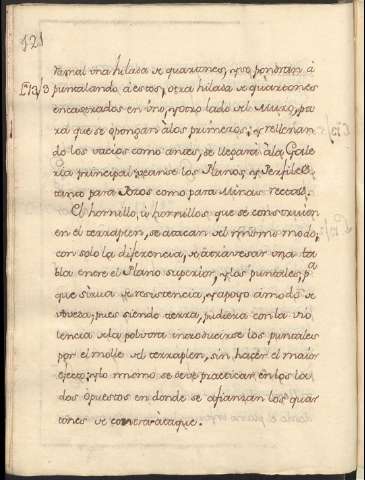 121
ramal una hilada de quartones, y se pondran â
L. 12/3
puntalando à estos, otra hilada de quartones
encastrados en úno, y otro lado del Muro, pa
rà que se opongan àlos primeros; y rellenan
do los vacios como antes, se llegará àla Gale
ria principal: veanse los Planos, y Perfiles,
tanto para Arcos como para Minas rectas.
El hornillo, ù hornillos que se construien
en el terraplen, se atacan del mismo modo,
con solo la diferencia, de atravesar una ta
bla entre el Plano superior, y los puntales, pa
que sirva de resistencia, y apoyo âmodo de
; pues siendo tierra, pudiera con la vio
lencia de la polvora introducirse los puntales
por el molle del terraplen, sin hacer el maior
efecto; y lo mismo se deve practicar en los la
dos ôpuestos en donde se afianzan los quar
tones de contra-ataque.